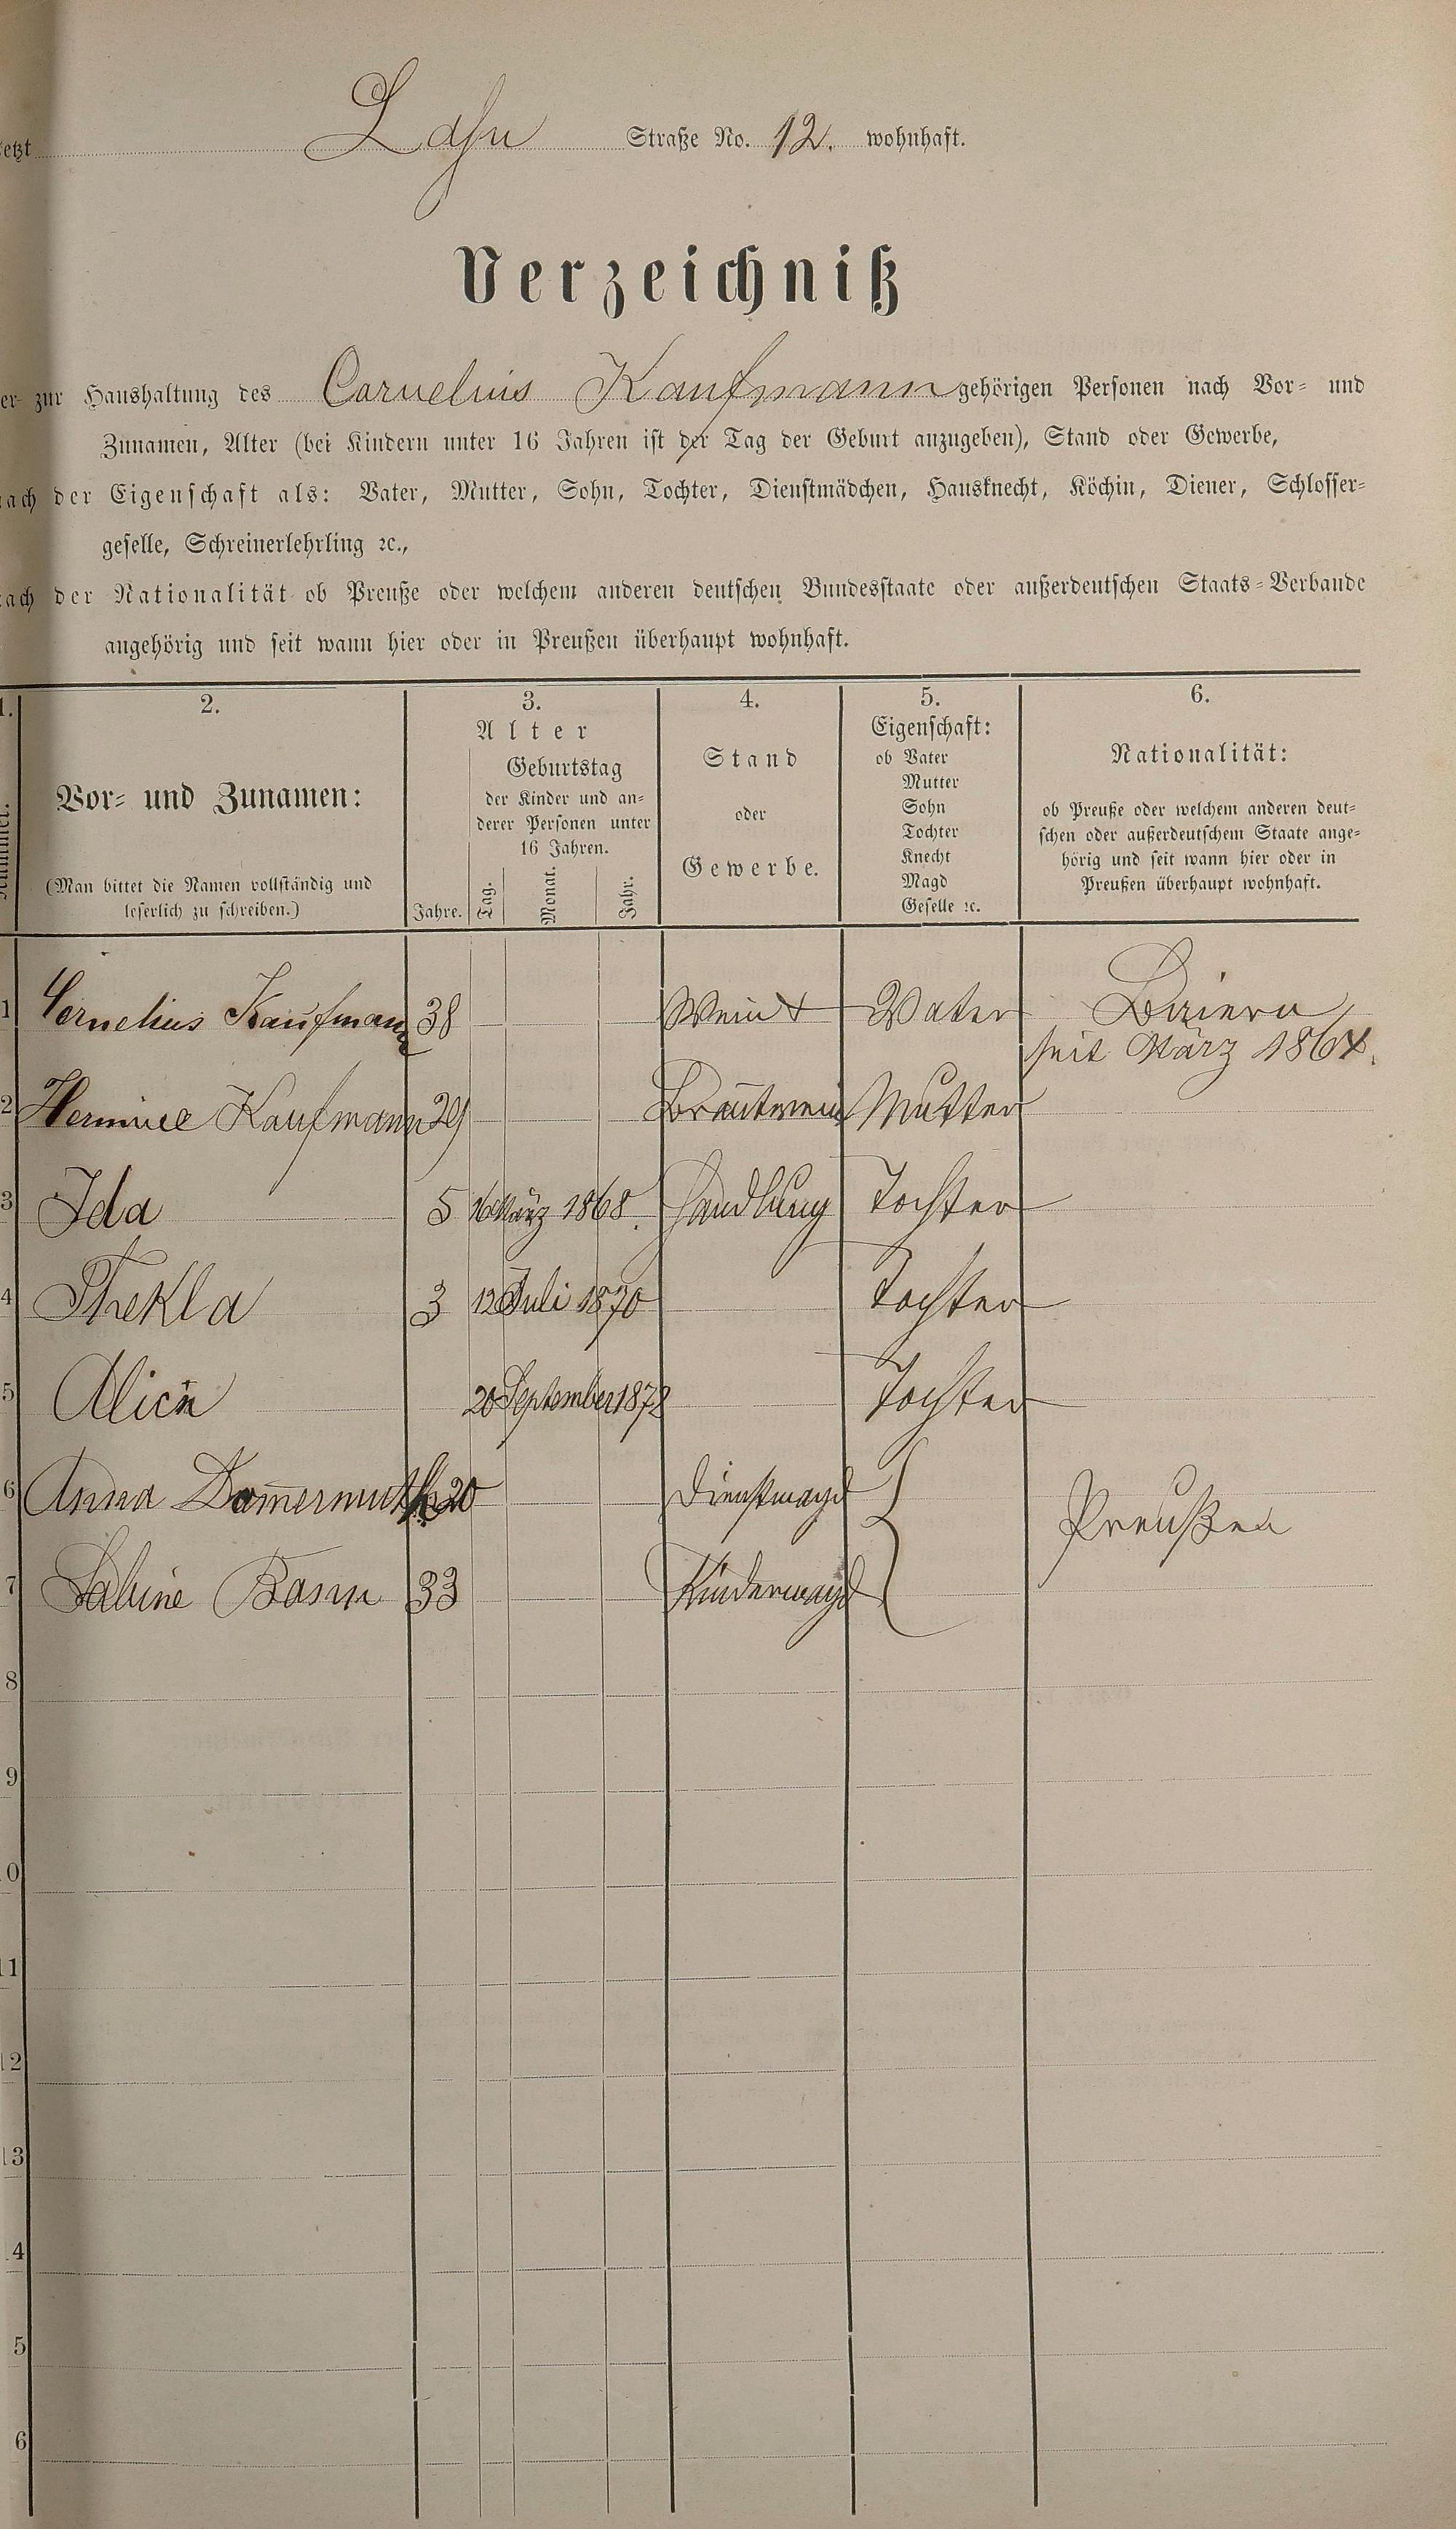 etzt Lahn Straße No. 12. wohnhaft.
Verzeichniß
er zur Haushaltung des Cornelius Kaufmann gehörigen Personen nach Vor- und
Zunamen, Alter (bei Kindern unter 16 Jahren ist der Tag der Geburt anzugeben), Stand oder Gewerbe,
nach der Eigenschaft als: Vater, Mutter, Sohn, Tochter, Dienstmädchen, Hausknecht, Köchin, Diener, Schlosser-
geselle, Schreinerlehrling ꝛc.,
nach der Nationalität ob Preuße oder welchem anderen deutschen Bundesstaate oder außerdeutschen Staats-Verbande
angehörig und seit wann hier oder in Preußen überhaupt wohnhaft.
1. 2. 3. 4. 5. 6.
Nummer.
Vor- und Zunamen:
(Man bittet die Namen vollständig und
leserlich zu schreiben.)
Alter
Geburtstag
der Kinder und an-
derer Personen unter
16 Jahren.
Jahre. Tag. Monat. Jahr.
Stand
oder
Gewerbe.
Eigenschaft:
ob Vater
Mutter
Sohn
Tochter
Knecht
Magd
Geselle ꝛc.
Nationalität:
ob Preuße oder welchem anderen deut-
schen oder außerdeutschem Staate ange-
hörig und seit wann hier oder in
Preußen überhaupt wohnhaft.
1 Cornelius Kaufmann 38 Wein & Vater Baiern
seit März 1864.
2 Hermine Kaufmann 29 Brantwein Mutter
3 Ida 5 16 März 1868. Handlung Tochter
4 Thekla 3 12 Juli 1870 Tochter
5 Alice 20 September 1872 Tochter
6 Anna Dom̅ermuth 20 Dienstmagd
Preußen
7 Sabine 33 Kindermagd
8
9
0
11
12
13
4
5
6